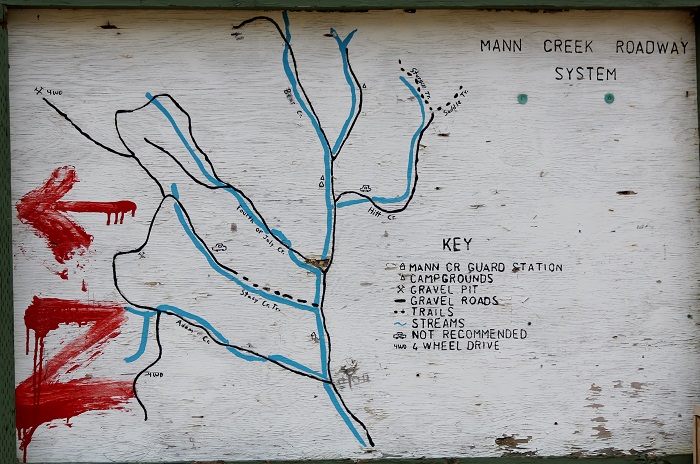 MANN CREEK ROADWAY
SYSTEM
4WD
Bear Cr.
Saddle Tr.
Hitt Cr.
Fourth of July Cr.
Stacy Cr. Tr.
Adams Cr.
4WD
N
KEY
MANN CR GUARD STATION
CAMPGROUNDS
GRAVEL PIT
GRAVEL ROADS
TRAILS
STREAMS
NOT RECOMMENDED
4WD 4 WHEEL DRIVE